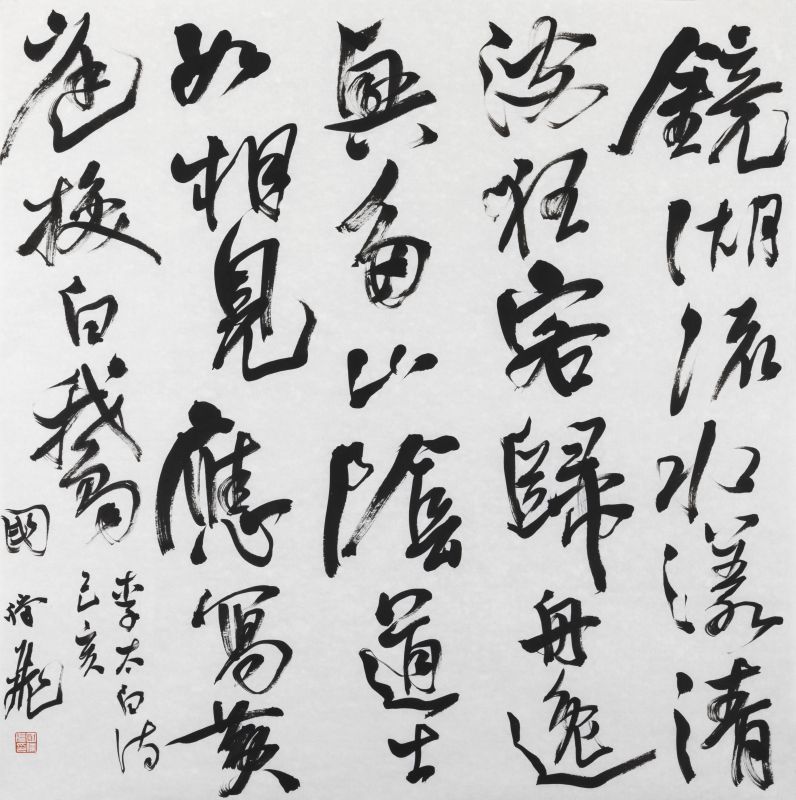 鏡湖流水漾清
波狂客歸舟逸
興多山陰道士
如相見應寫黃
庭換白鵞
李太白詩
己亥
國